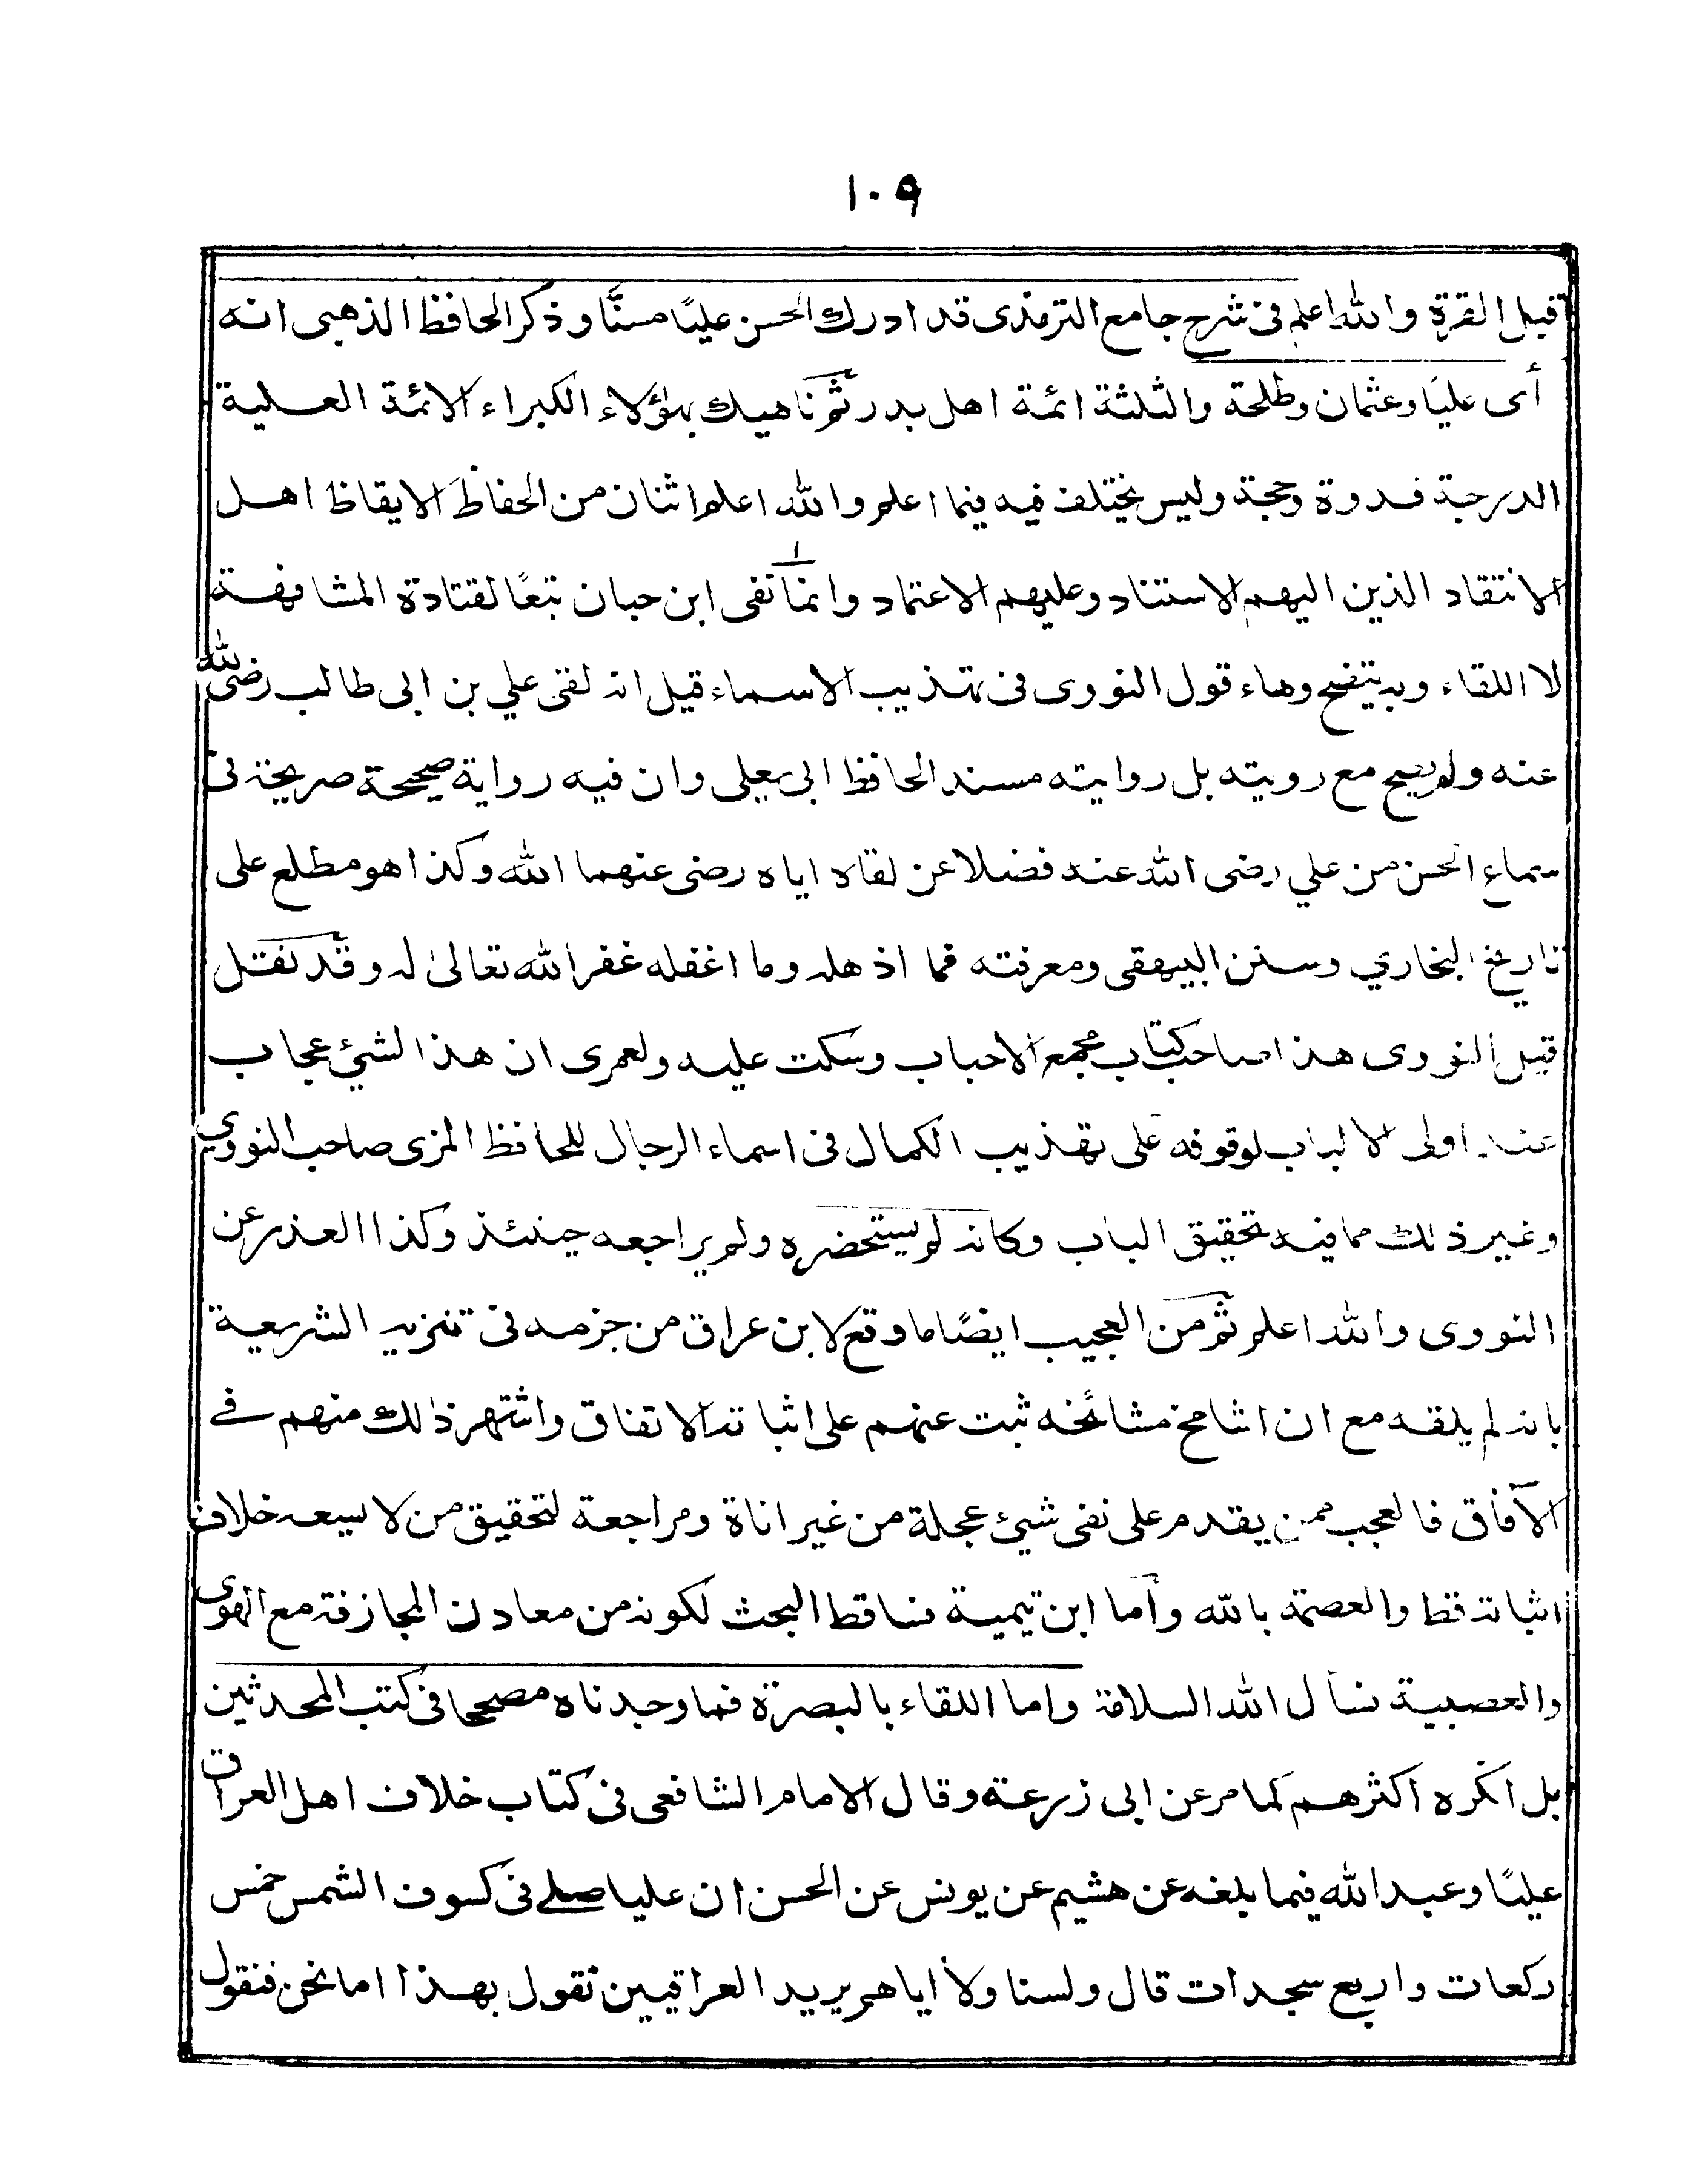 ١٠٩
قبل القرة والله اعلم فى شرح جامع الترمذى قد ادرك الحسن عليًا مسنًّا وذكر الحافظ الذهبى انه
أى عليًا وعثمان وطلحة والثلثة ائمة اهل بدر ثم ناهيك بهؤلاء الكبراء الائمة العلية
الدرجة قدوة وحجة وليس يختلف فيه فيما اعلم والله اعلم اثنان من الحفاظ الايقاظ اهل
الانتقاد الذين اليهم الاستناد وعليهم الاعتماد وانما نفى ابن حبان تبعًا لقتادة المشافهة
لا اللقاء وبه يتضح وهاء قول النووى فى تهذيب الاسماء قيل انه لقى علي بن ابى طالب رضى الله
عنه ولم يصح مع رويته بل روايته مسند الحافظ ابى يعلى وان فيه رواية صحيحة صريحة فى
سماع الحسن من علي رضى الله عنه فضلا عن لقاه اياه رضى عنهما الله وكذا هو مطلع على
تاريخ البخاري وسنن البيهقى ومعرفته فما اذهله وما اغفله غفر الله تعالىٰ له وقد نقل
قيل النووى هذا صاحب كتاب مجمع الاحباب وسكت عليه ولعمرى ان هذا لشئ عجاب
عند اولى الالباب لوقوفه على تهذيب الكمال فى اسماء الرجال للحافظ المزى صاحب النووى
وغير ذلك مما فيه تحقيق الباب وكانه لم يستحضره ولم يراجعه حينئذ وكذا العذر عن
النووى والله اعلم ثم من العجيب ايضًا ما وقع لابن عراق من جزمه فى تنزيه الشريعة
بانه لم يلقه مع ان اشامخ مشائخه ثبت عنهم على اثباته الاتفاق واشتهر ذلك منهم فے
الآفاق فالعجب ممن يقدم على نفى شئ عجلة من غير اناة ومراجعة لتحقيق من لا يسعه خلاف
اثباته قط والعصمة بالله وأما ابن تيمية فساقط البحث لكونه من معادن المجازفة مع الهوى
والعصبية نسأل الله السلامة واما اللقاء بالبصرة فما وجدناه مصححا فى كتب المحدثين
بل انكره اكثرهم كما مر عن ابى زرعة وقال الامام الشافعى فى كتاب خلاف اهل العراق
عليًا وعبد الله فيما بلغه عن هشيم عن يونس عن الحسن ان عليا صلے فى كسوف الشمس خمس
ركعات واربع سجدات قال ولسنا ولا اياهم يريد العراقيين نقول بهذا اما نحن فنقول